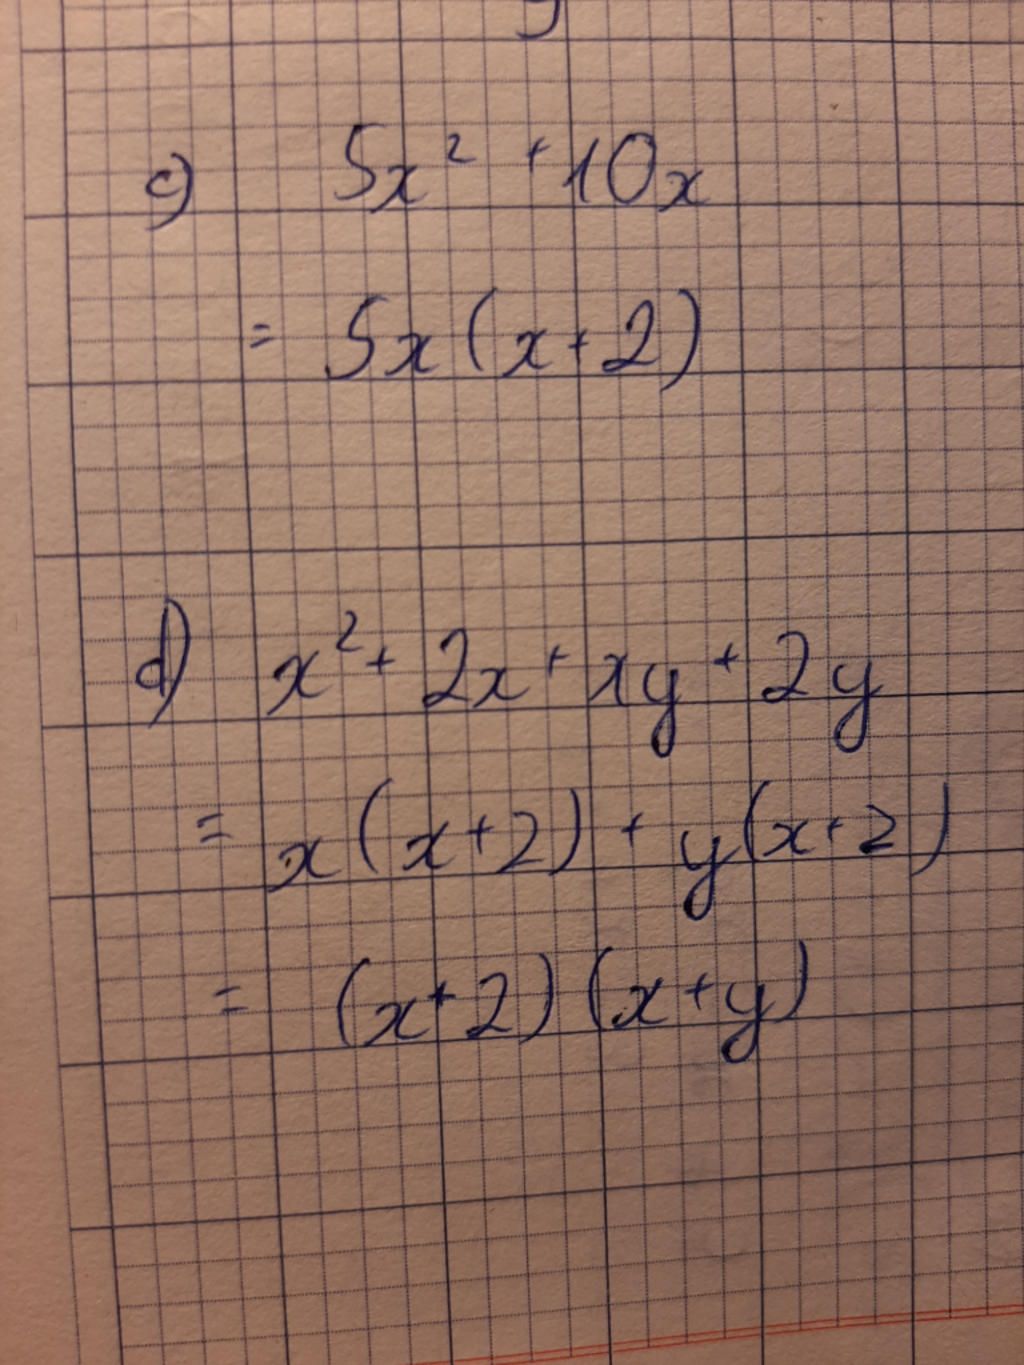 c) 5x² + 10x
= 5x(x+2)
d) x² + 2x + xy + 2y
= x(x+2) + y(x+2)
= (x+2)(x+y)